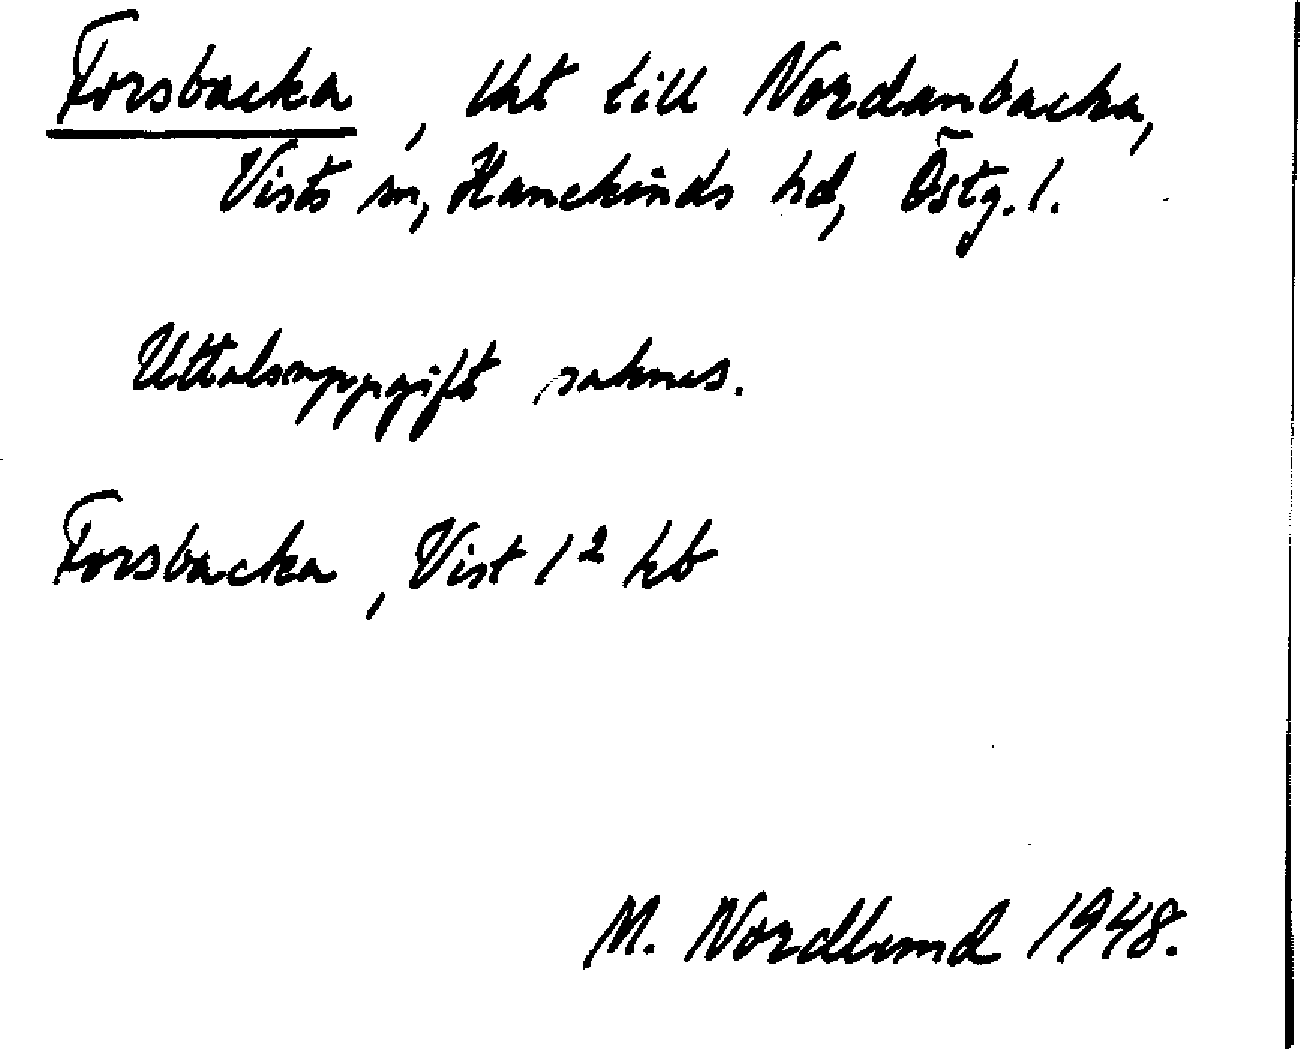 Forsbacka, lht till Nordanbacka,
Vists sn, Hanekinds hd, Östg. l.
Uttalsuppgift saknas.
Forsbacka, Vist 1² hb
M. Nordlund 1948.